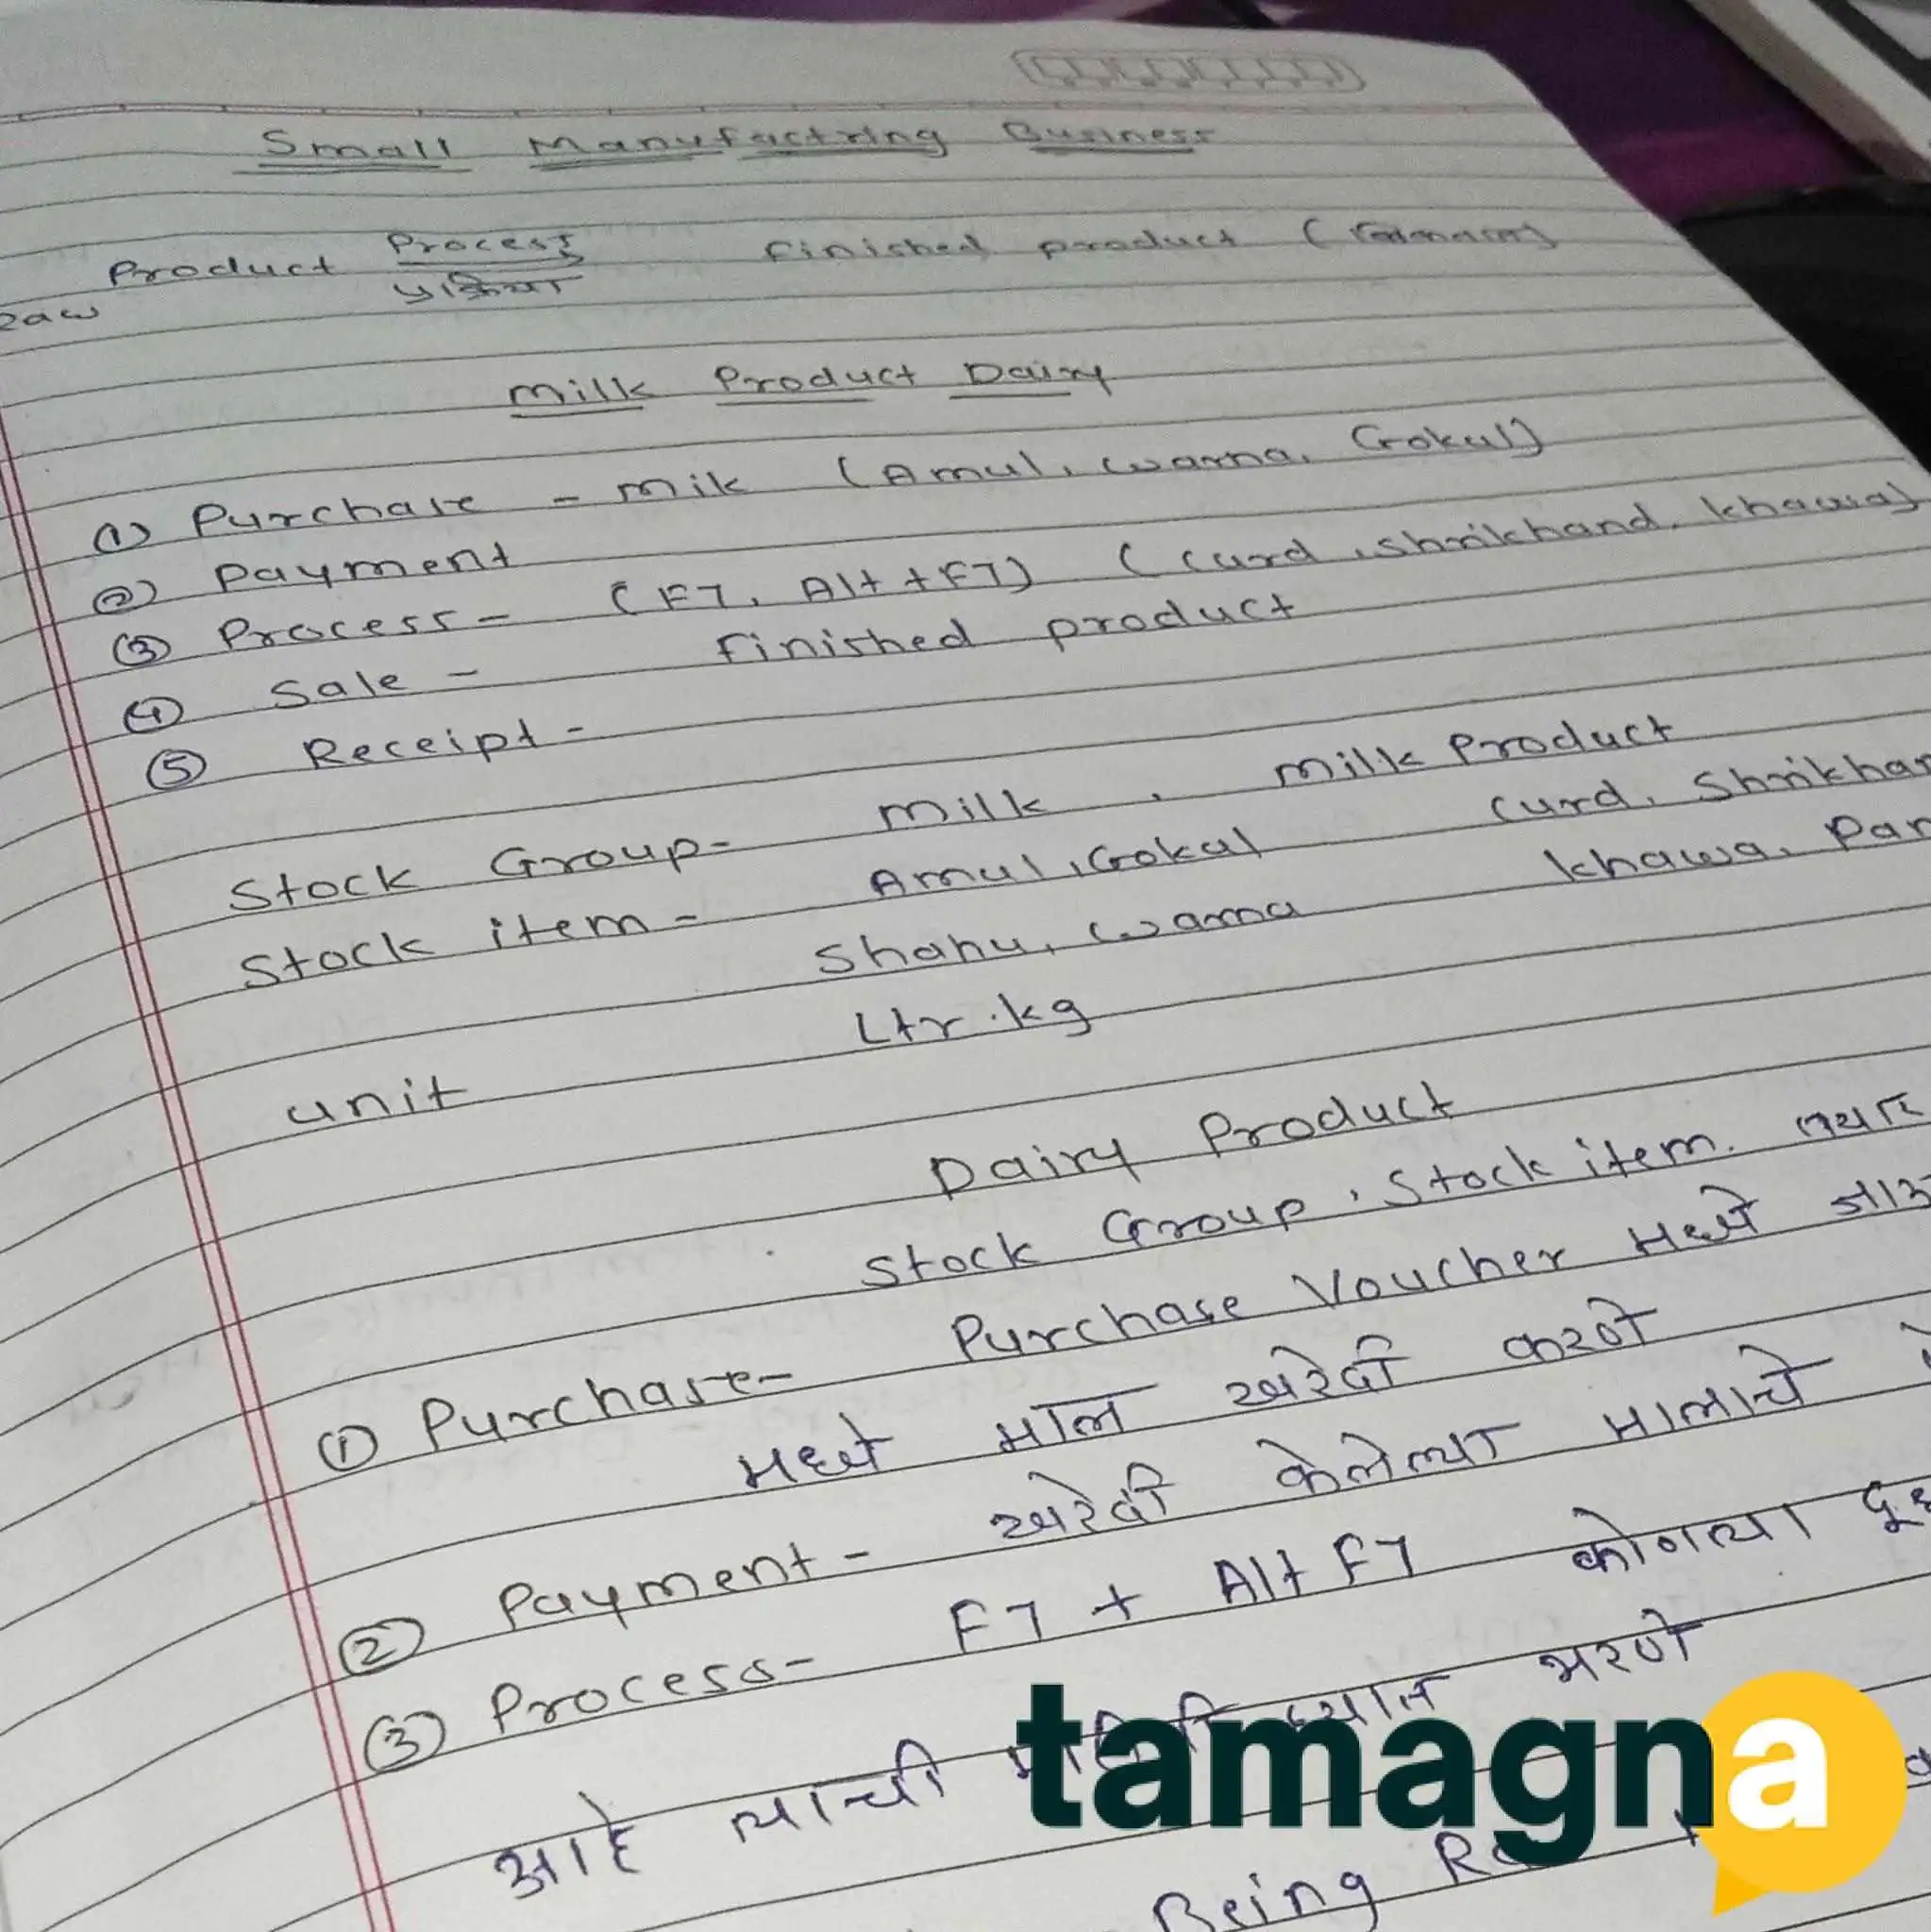 Small Manufactring Business
Process
Product
finished product (
प्रक्रिया
Raw
Milk Product Dairy
(1) Purchase - Milk (Amul, Warna, Gokul)
(2) Payment
(3) Process - (F7, Alt + F7) (Curd, Shrikhand, khawa)
(4) Sale - finished product
(5) Receipt -
Stock Group - Milk, Milk Product
Stock item - Amul, Gokul Curd, Shrikhan
Shahu, Warna khawa, Pan
unit Ltr. kg
Dairy Product
Stock Group, Stock item.
(1) Purchase - Purchase Voucher मध्ये
मध्ये माल खरेदी करणे
(2) Payment - खरेदी केलेल्या मालाचे
(3) Process - F7 + Alt F7 कोणत्या
भरणे
आहे त्याची
Being
tamagna